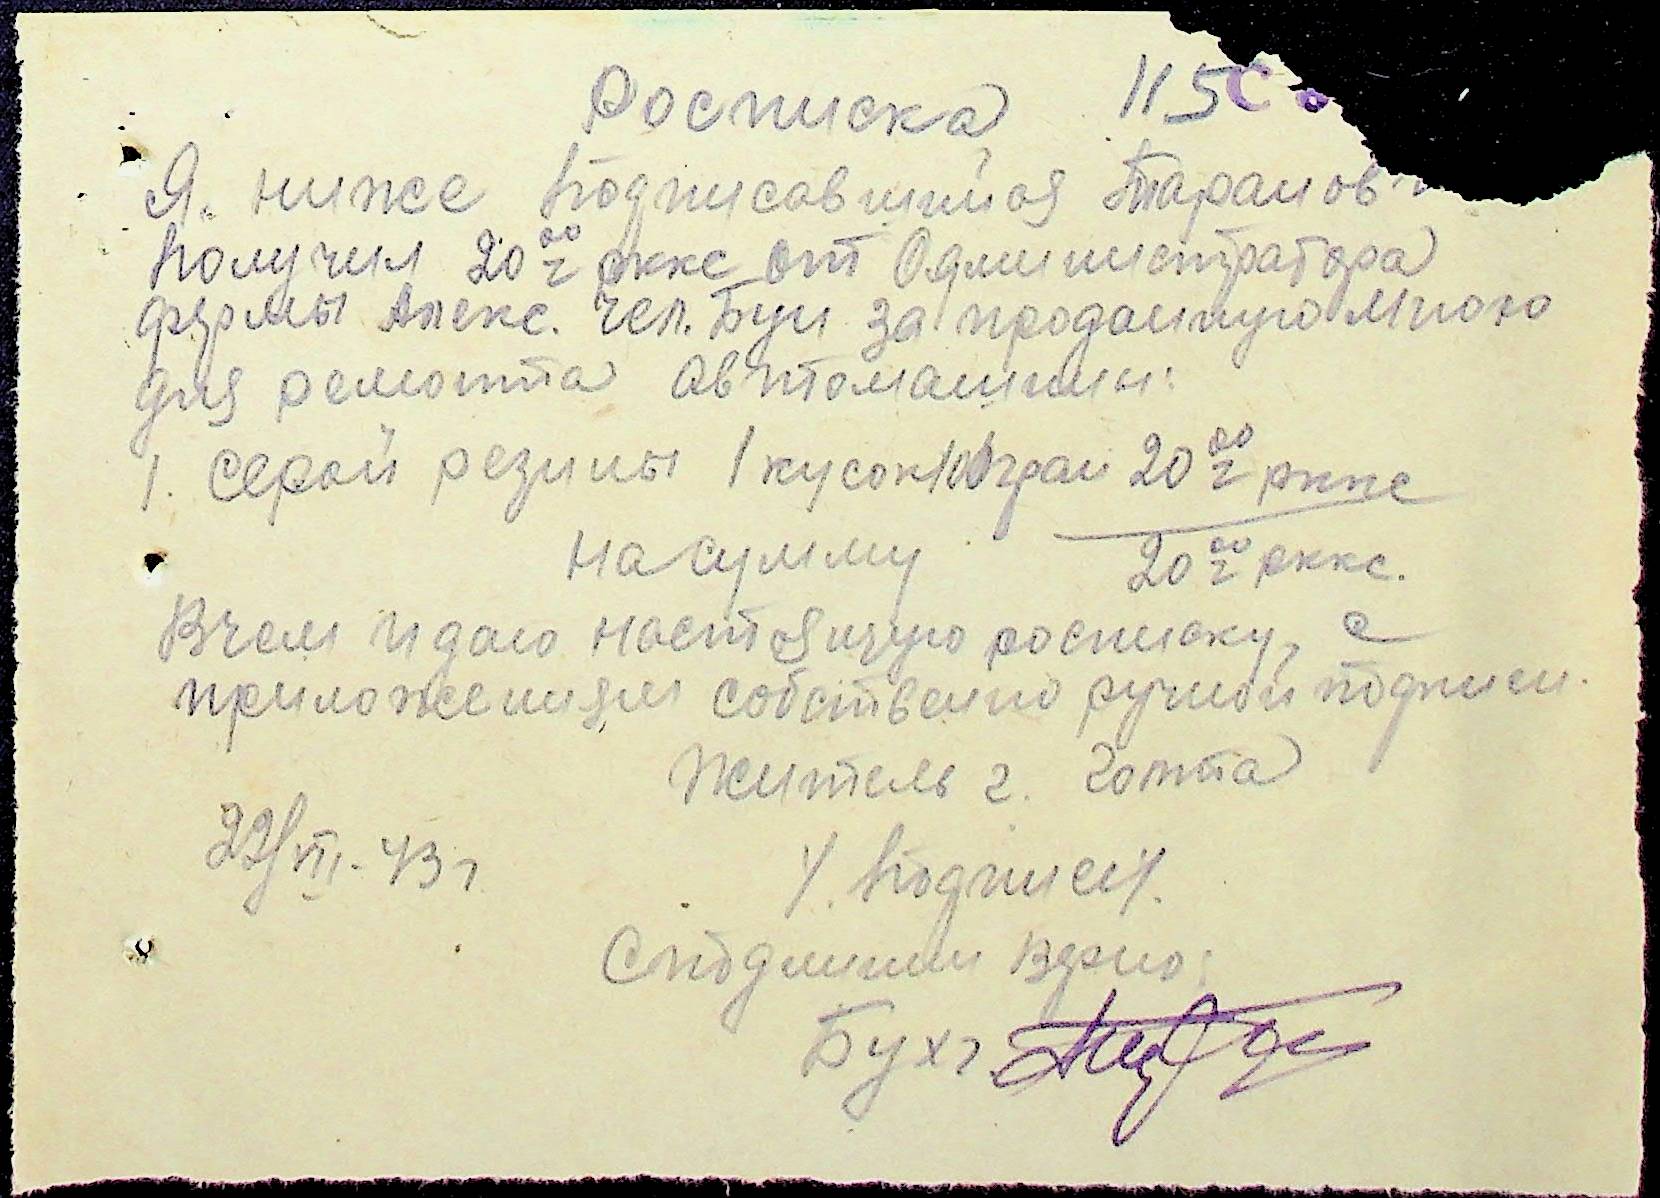 Росписка 115
Я. ниже подписавшийся Таранов
получил 20 00/г рккс от Администратора
фермы Алекс. Чел. Буи за проданную мною
для ремонта автомашины:
1. Серой резины 1 кусок 100 гран 20 00/г рккс
На сумму 20 00/г рккс.
В чем и даю настоящую росписку, с
приложениям собственно ручной подписи.
Житель г. Голта
22/VII-43 г.
У. Подписи.
С подлиным верно:
Бухг